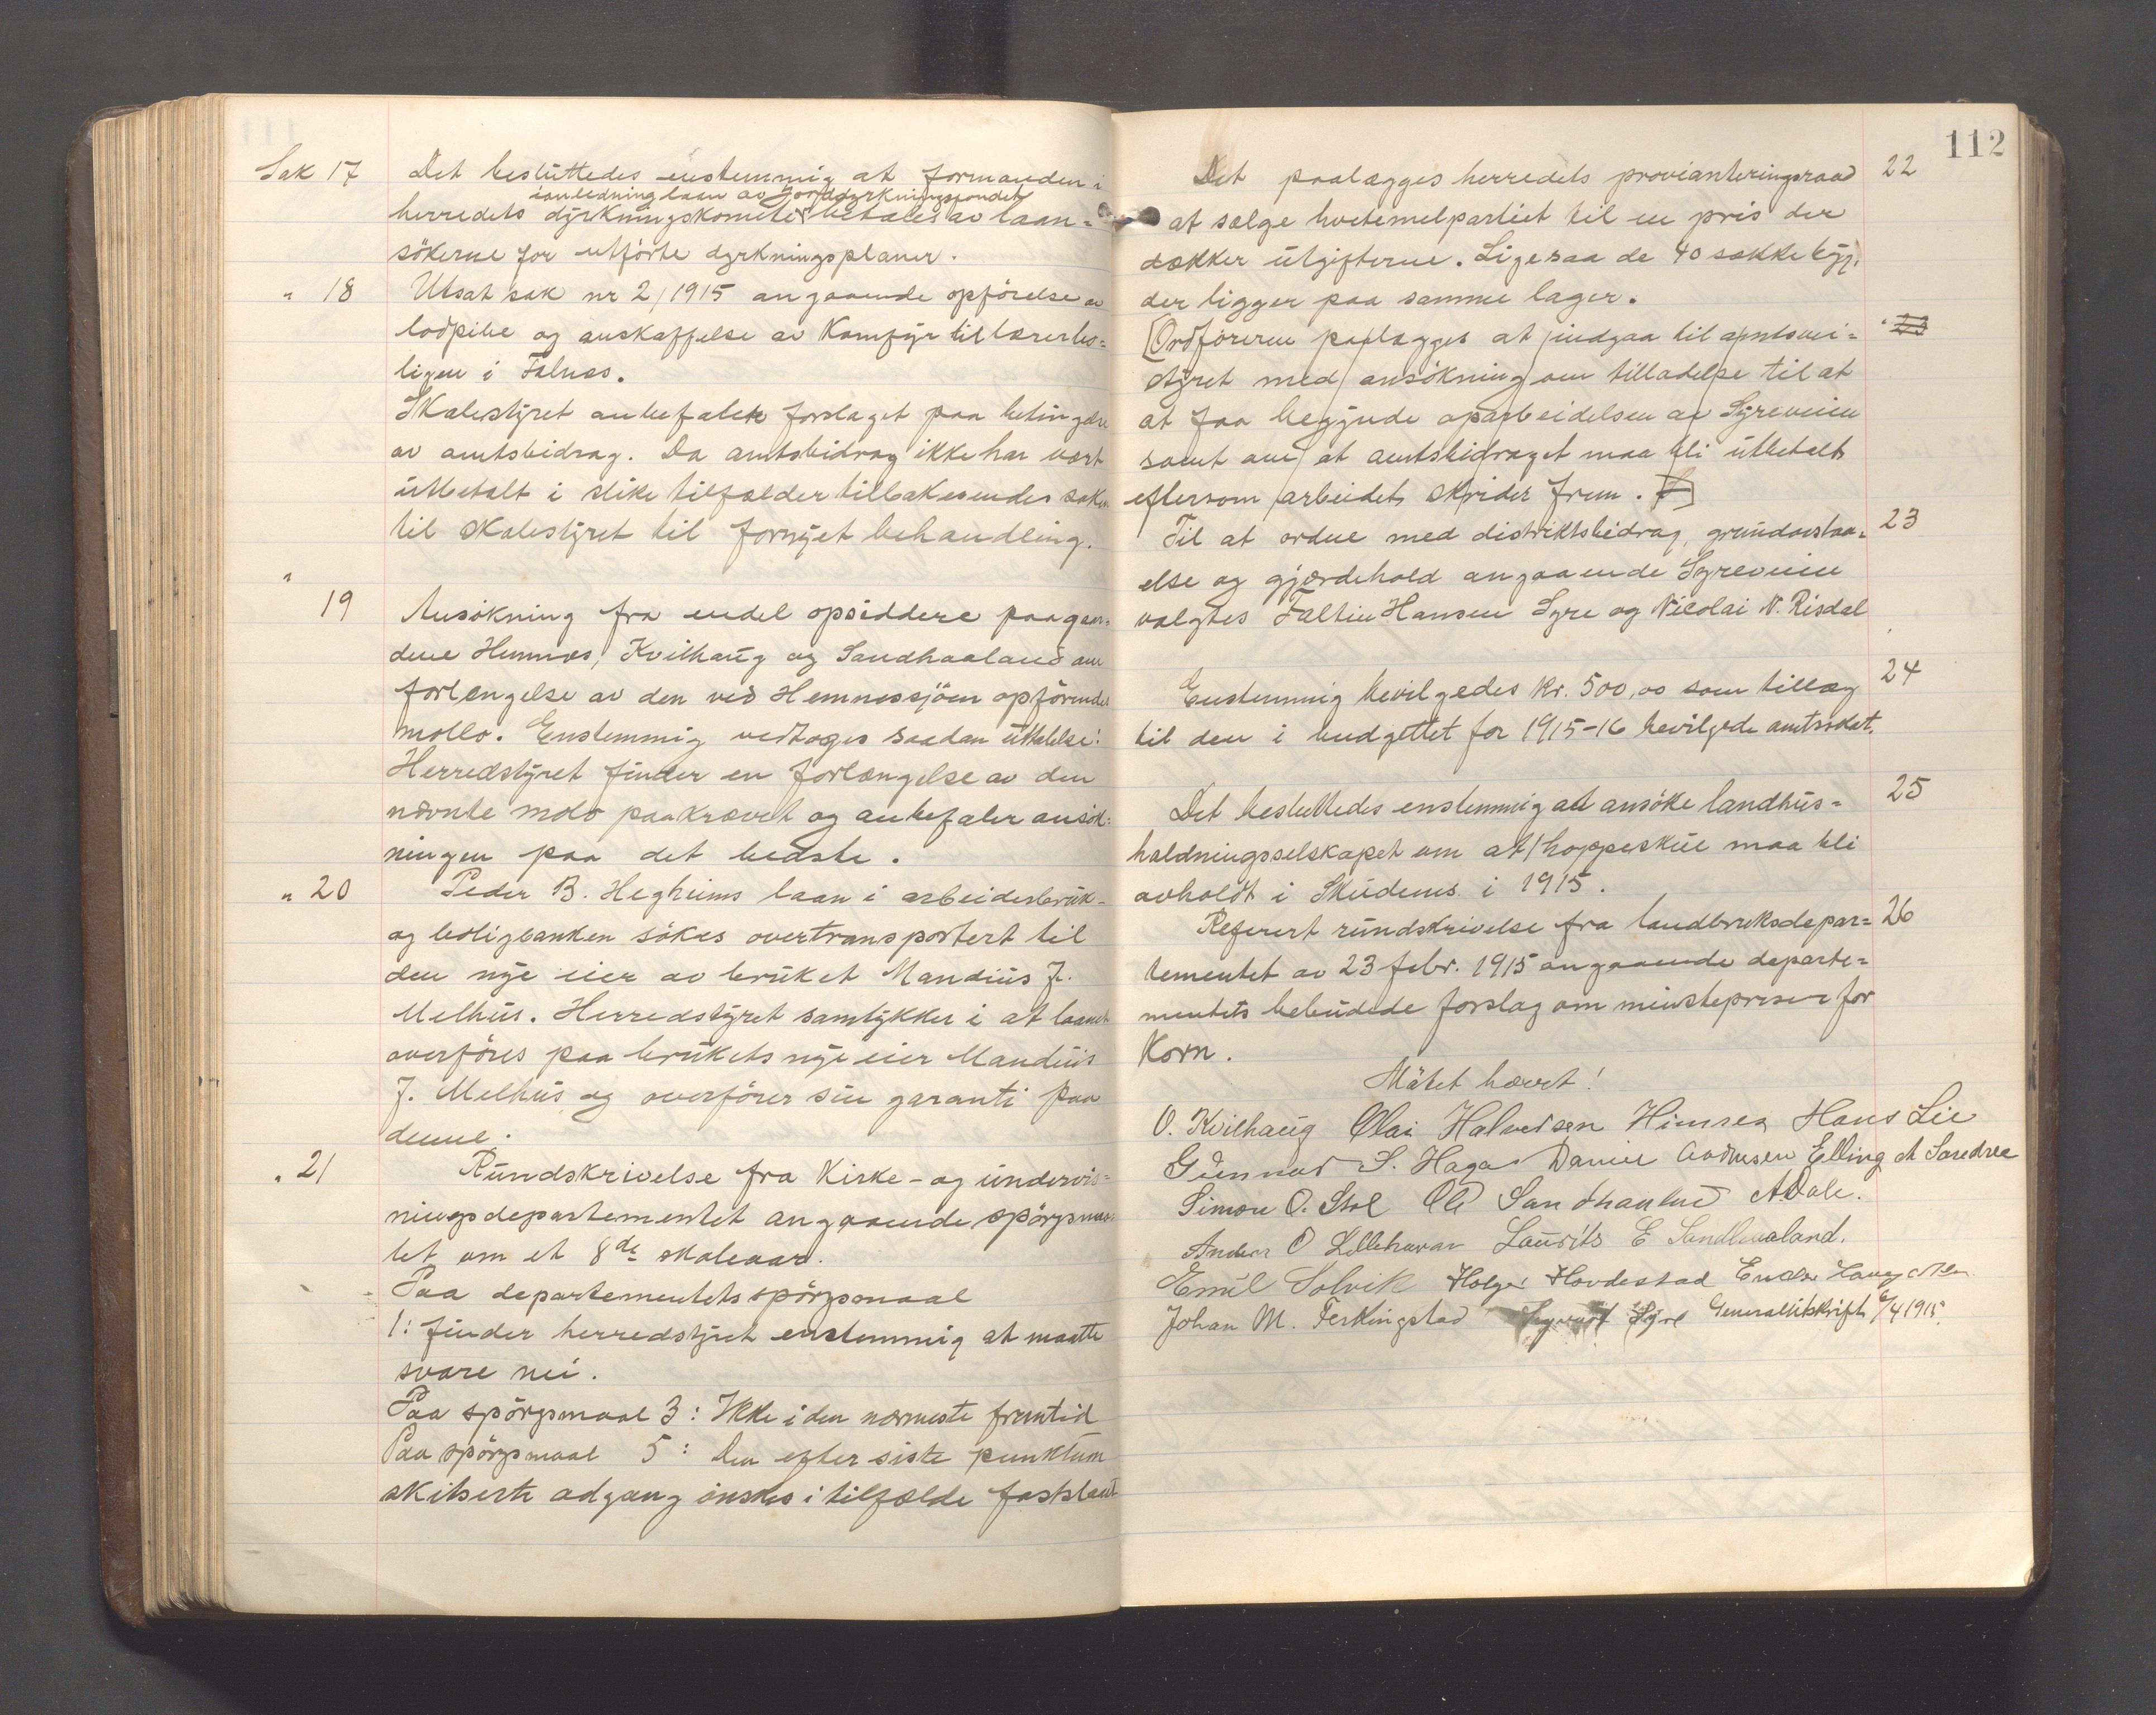 Sak 17 Det besluttedes enstemmig at formanden i
ianledning laan av jorddyrkningsfondet
herredets dyrkningskomite betales av laan=
søkerne for utførte dyrkningsplaner.
" 18 Utsat sak nr 2/1915 angaaende opførelse av
lodpibe og anskaffelse av Komfyr til lærerbo=
ligen i Falnes.
Skolestyret anbefaler forslaget paa betingelse
av amtsbidrag. Da amtsbidrag ikke har vært
utbetalt i slike tilfælder tilbakesendes saken
til skolestyret til fornyet behandling.
"
19 Ansøkning fra endel opsiddere paa gaar=
dene Hemnes, Kvilhaug og Sandhaaland om
forlængelse av den ved Hemnessjøen opførende
mollo. Enstemmig vedtoges saadan uttalelse:
Herredstyret finder en forlængelse av den
nævnte molo paakrævet og anbefaler ansøk=
ningen paa det bedste.
" 20 Peder B. Hegheims laan i arbeiderbruk-
og boligbanken søkes overtransportert til
den nye eier av bruket Mandius J.
Melhus. Herredstyret samtykker i at laanet
overføres paa brukets nye eier Mandius
J. Melhus og overfører sin garanti paa
denne.
" 21 Rundskrivelse fra Kirke- og undervis=
ningsdepartementet angaaende spørgsmaa=
let om et 8de skoleaar.
Paa departementets spørgsmaal
1: finder herredstyret enstemmig at maatte
svare nei.
Paa spørgsmaal 3: Ikke i den nærmeste fremtid
Paa spørgsmaal 5: Den efter siste punktum
skitserte adgang ønskes i tilfælde fastslaat
112
Det paalægges herredets provianteringsraad 22
at sælge hvetemelpartiet til en pris der
dækker utgifterne. Ligesaa de 40 sække byg,
der ligger paa samme lager.
[Ordføreren paalægges at indgaa til amtsvei= " 23
styret med ansøkning om tilladelse til at
at faa begynde oparbeidelsen av Syreveien
samt om at amtsbidraget maa bli utbetalt
eftersom arbeidet skrider frem.]
Til at ordne med distriktsbidrag, grundavstaa= 23
else og gjærdehold angaaende Syreveien
valgtes Faltin Hansen Syre og Nicolai N. Risdal
Enstemmig bevilgedes Kr. 500,00 som tillæg 24
til den i budgettet for 1915-16 bevilgede amtsskat.
Det besluttedes enstemmig at ansøke landhus= 25
holdningsselskapet om at hoppeskue maa bli
avholdt i Skudenes i 1915.
Referert rundskrivelse fra landbruksdepar= 26
tementet av 23 febr. 1915 angaaende departe=
mentets bebudede forslag om minstepriser for
Korn.
Møtet hævet!
O. Kvilhaug Olai Halvorsen Hans Lie
Gunnar S. Haga Elling
Simon O. Stol Ole Sandhaaland A Dale.
Anders O Laurits E Sandhaaland.
Emil Solvik Holger Hovdestad
Johan M. Ferkingstad Sigvart Syre Generalutskrift 6/4 1915.